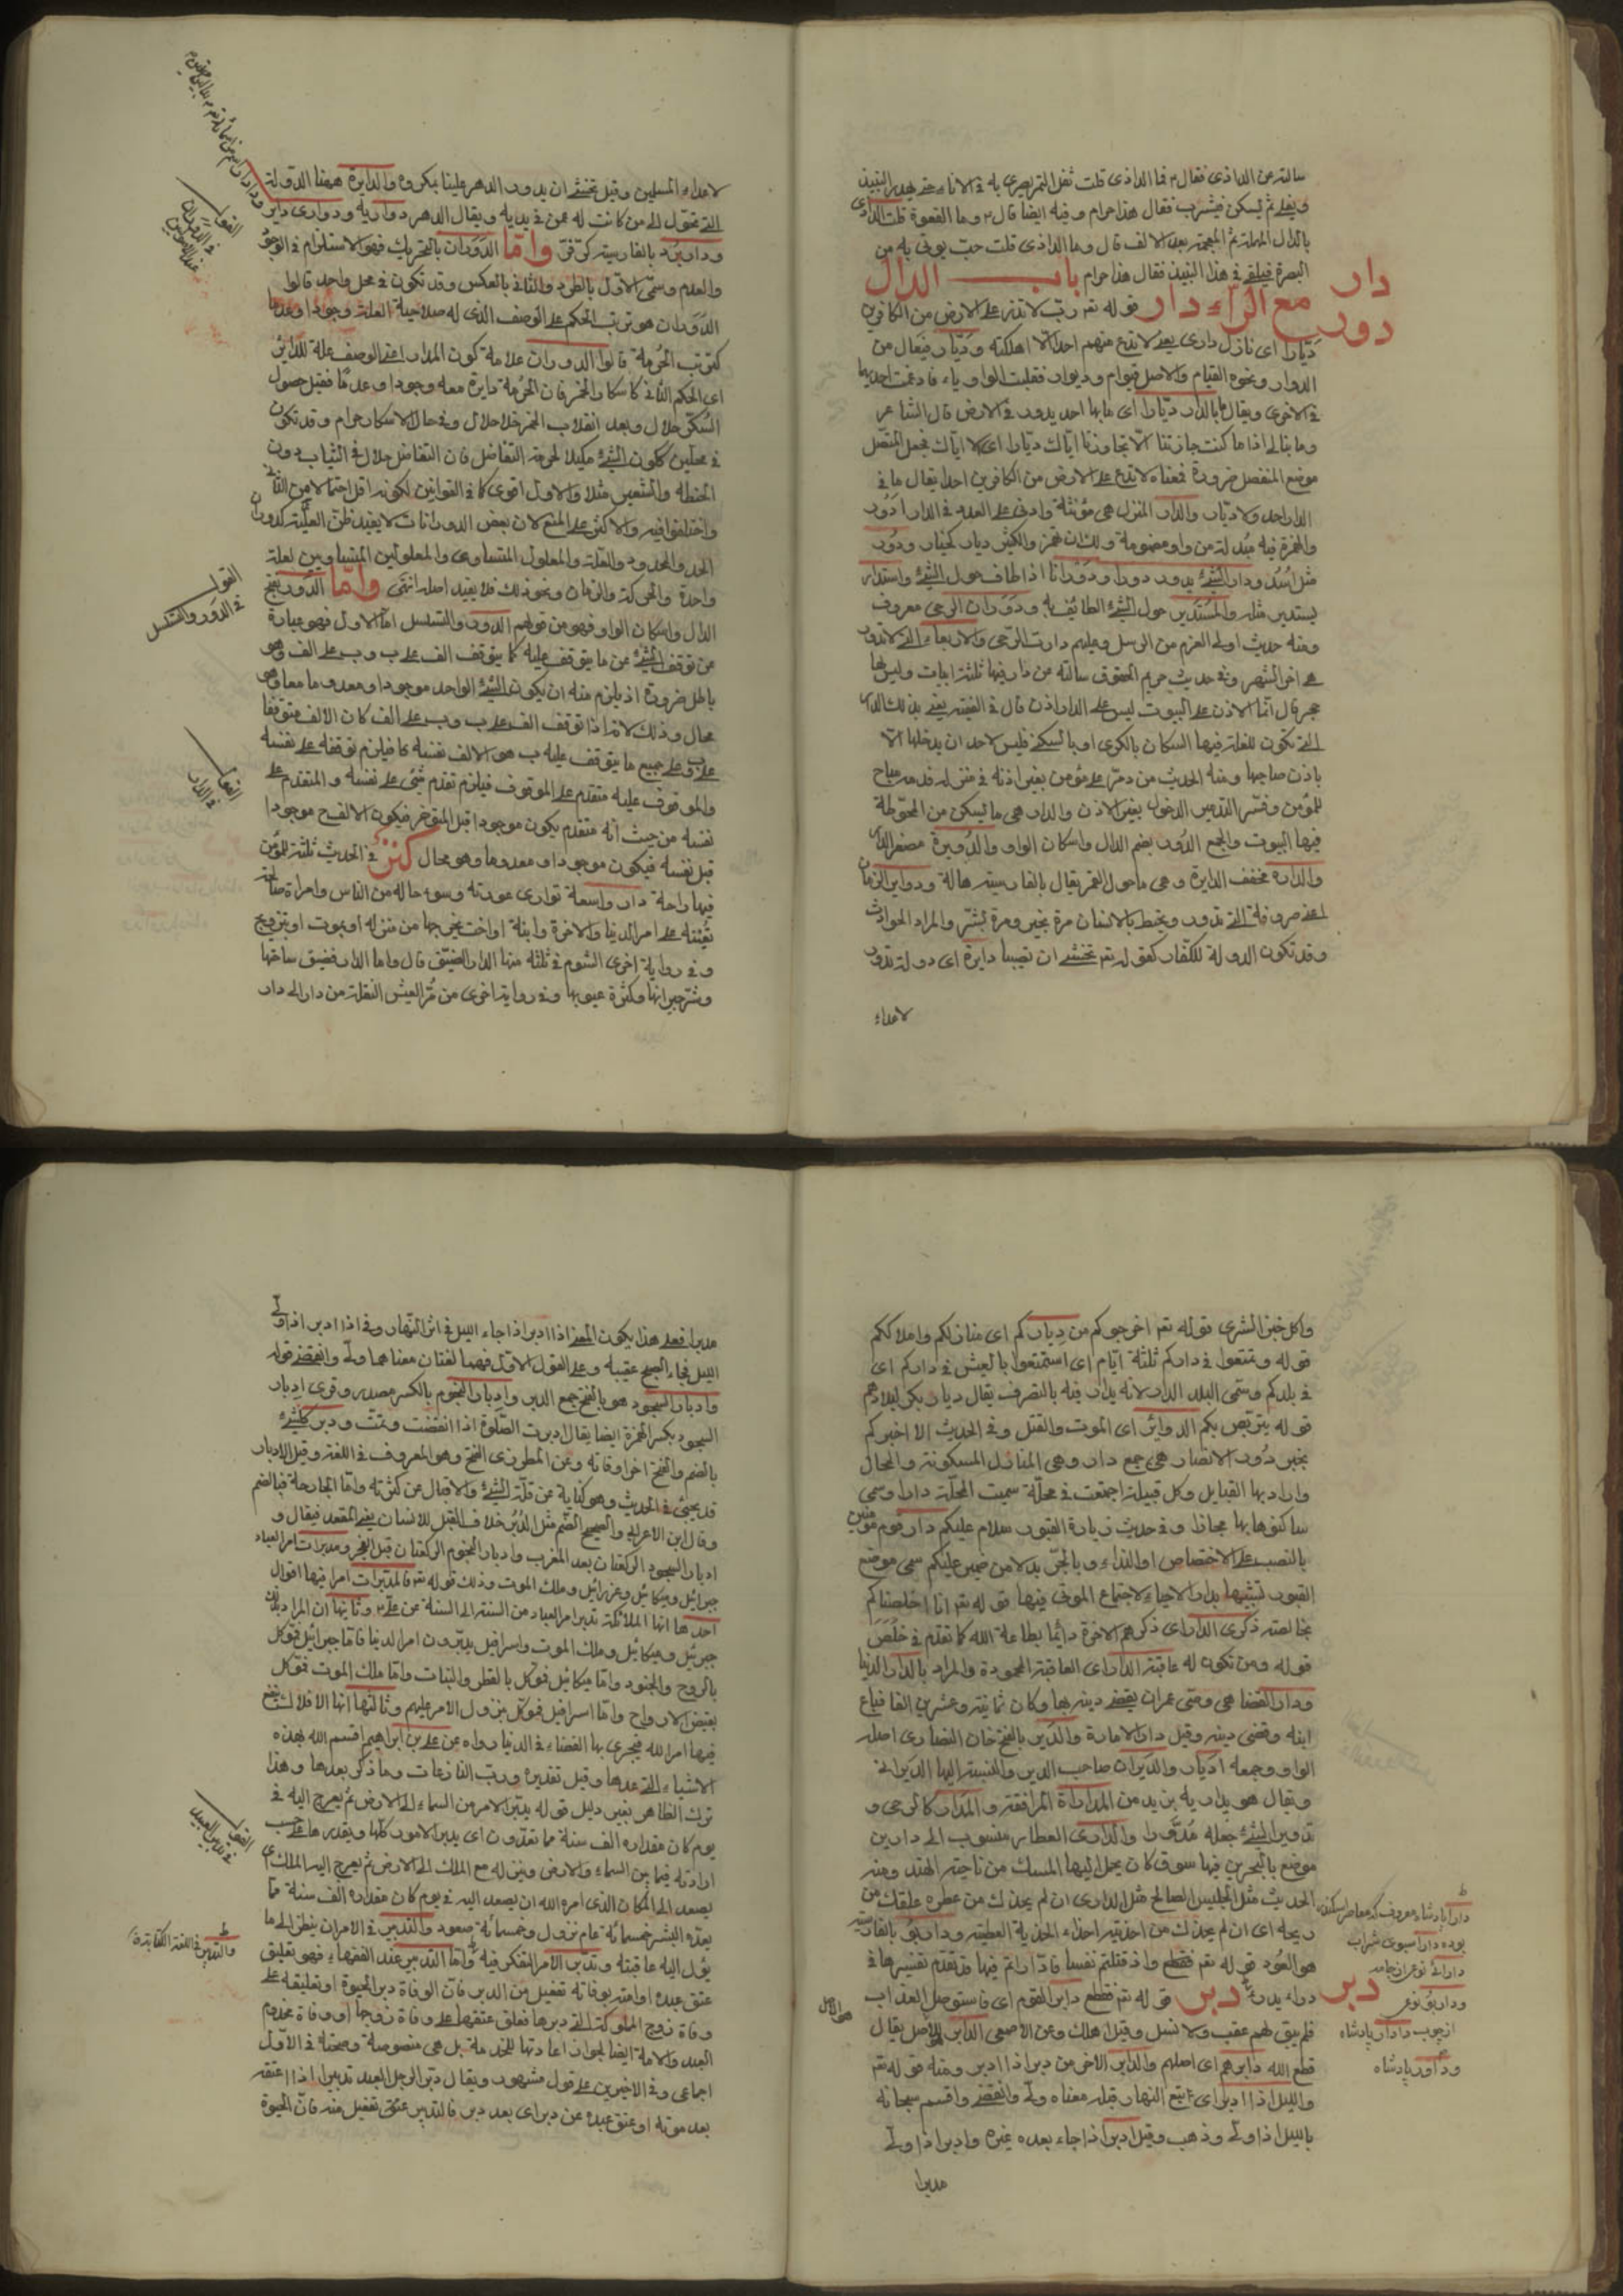 سالته عن الداذى فقال ما الداذى قلت ثفل التمر يضرى به فى الاناء حتى يهدر النبيذ
ويغلى ثم يسكن فيشرب فقال هذا حرام وفيه ايضا قال وما القعوة قلت الداذى
بالدال المهملة ثم المعجمة بعد الالف قال وما الداذى قلت حب يوتى به من
البصرة فيلقى فى هذا النبيذ فقال هذا حرام باب الدال
مع الراء دار قوله تع رب لا تذر على الارض من الكافرين
دار
دور
ديارا اى نازل دارى يعنى لا تدع منهم احدا الا اهلكته وديار فيعال من
الدوار ونحوه القيام والاصل قيوام وديوار فقلبت الواو ياء فادغمت احديهما
فى الاخرى ويقال ما بالدار ديارا اى ما بها احد يدور فى الارض قال الشاعر
وما نبالى اذا ما كنت جارتنا الا يجاورنا اياك ديارا اى الا اياك فجعل المتصل
موضع المنفصل ضرورة فمعناه لا تدع على الارض من الكافرين احدا يقال ما فى
الدار احد ولا ديار والدار المنزل هى مؤنثة وادنى العدد فى الدار ادؤر
والهمزة فيه مبدلة من واو مضمومة ولك ان تهمز والكثير ديار كخيار ودور
مثل اسد ودار الشئ يدور دورا ودورانا اذا طاف حول الشئ واستدار
يستدير مثله والمستدير حول الشئ الطائف به ودوران الرحى معروف
ومنه حديث اولى العزم من الرسل وعليهم دارت الرحى والاربعاء التى لا تدور
هى اخر الشهر وفى حديث حريم الحقوق سالته عن دار فيها ثلثة ابيات وليس لها
حجر قال انما الاذن على البيوت ليس على الدار اذن قال فى الفقيه يعنى بذلك الدار
التى تكون للغلة فيها السكان بالكرى او بالسكنى فليس لاحد ان يدخلها الا
باذن صاحبها ومنه الحديث من دمر على مؤمن بغير اذنه فى منزله فدمه مباح
للمؤمن وفسر التدمير الدخول بغير الاذن والدار هى ما يسكن من المحوطة
فيها البيوت والجمع الدور بضم الدال واسكان الواو والدويرة مصغر الدار
والدارة مخفف الدايرة وهى ما حول القمر يقال بالفارسية هالة ودواير الزمان
اعنى صروفه التى تدور وتحيط بالانسان مرة بخير ومرة بشر والمراد الحوادث
وقد تكون الدولة للكفار كقوله تع نخشى ان تصيبنا دايرة اى دولة تدور
لاعداء
لاعداء المسلمين وقيل نخشى ان يدور الدهر علينا بمكروه والدايرة ههنا الدولة
التى تحول الى من كانت له عمن فى يديه ويقال الدهر دواريه ودوارى داير
بالفارسية واما الدوران بالتحريك فهو الاستلزام فى الوجود
والعدم وسمى الاول بالطرد والثانى بالعكس وقد تكون فى محل واحد قالوا
الدوران هو ترتب الحكم على الوصف الذى له صلاحية العلية وجودا وعدما
كترتب الحرمة قالوا الدوران علامة كون المدار اعنى الوصف علة للداير
اى الحكم الثانى كاسكار الخمر فان الحرمة دايرة معه وجودا وعدما فقبل حصول
السكر حلال وبعد انقلاب الخمر خلا حلال وفى حال الاسكار حرام وقد تكون
فى محلين ككون الشئ مكيلا لحرمة التفاضل فان التفاضل حلال فى الثياب دون
الحنطة والشعير مثلا والاول اقوى كما فى القوانين لكونه اقل احتمالا من الثانى
واختلفوا فيه والاكثر على المنع لان بعض الدورانات لا يفيد ظن العلية كدوران
الحد والمحدود والعلة والمعلول المتساوى والمعلولين المتساويين لعلة
واحدة والحركة والزمان ونحو ذلك فلا يفيد اصله انتهى واما الدور بفتح
الدال واسكان الواو فهو من قولهم الدور والتسلسل اما الاول فهو عبارة
عن توقف الشئ عن ما يتوقف عليه كما يتوقف الف على ب وب على الف وهو
باطل ضرورة اذ يلزم منه ان يكون الشئ الواحد موجودا ومعدوما معا وهو
محال وذلك لانه اذا توقف الف على ب وب على الف كان الالف متوقفا
على ب وعلى جميع ما يتوقف عليه ب هو الالف نفسه كا فيلزم توقفه على نفسه
والموقوف عليه متقدم على الموقوف فيلزم تقدم شئ على نفسه والمتقدم على
نفسه من حيث انه متقدم يكون موجودا قبل المتوخر فيكون الالف ح موجودا
قبل نفسه فيكون موجودا ومعدوما وهو محال كنز فى الحديث ثلثة للمؤمن
فيها راحة دار واسعة توارى عورته وسوء حاله من الناس وامراة صالحة
تعينه على امر الدنيا والاخرة وابنة او اخت يخرجها من منزله او بموت او بتزويج
وفى رواية اخرى الشوم فى ثلثة منها الدار الضيق قال واما الدار فضيق ساحتها
وشر جيرانها وكثرة عيوبها وفى رواية اخرى من مر العيش النقلة من دار الى دار
القول
فى الدوران
القول
فى الدور والتسلسل
القول
فى الدار
واكل خبز الشرى قوله تع اخرجوكم من دياركم اى منازلكم واملاككم
قوله وتمتعوا فى داركم ثلثة ايام اى استمتعوا بالعيش فى داركم اى
فى بلدكم وسمى البلد الدار لانه يدار فيه بالتصرف يقال ديار بكر لبلادهم
قوله يتربص بكم الدوائر اى الموت والقتل وفى الحديث الا اخبركم
بخير دور الانصار هى جمع دار وهى المنازل المسكونة والمحال
واراد بها القبايل وكل قبيلة اجتمعت فى محلة سميت المحلة دارا وسمى
ساكنوها بها مجازا وفى حديث زيارة القبور سلام عليكم دار قوم مؤمنين
بالنصب على الاختصاص او النداء وبالجر بدلا من ضمير عليكم سمى موضع
القبور تشبيها بدار الاحياء لاجتماع الموتى فيها قوله تع انا اخلصناكم
بخالصة ذكرى الدار اى ذكرهم الاخرة دائما بطاعة الله كما تقدم فى خلص
قوله ومن تكون له عاقبة الدار اى العاقبة المحمودة والمراد بالدار الدنيا
ودار القضا هى وصى عمران يقضى دينه بها وكان ثمانية وعشرين الفا فباع
ابنه وقضى دينه وقيل دار الامارة والدير بالفتح خان النصارى اصله
الواو وجمعه اديار والديران صاحب الدير والنسبة اليها الديرانى
ويقال هو يداريه يريد من المداراة المرافقة والمدار كالرحى و
تدوير الشئ جعله مدورا والدارى العطار منسوب الى دارين
موضع بالبحرين فيها سوق كان يحمل اليها المسك من ناحية الهند ومنه
الحديث مثل الجليس الصالح مثل الدارى ان لم يحذك من عطره علقك من
ريحه اى ان لم يحذك من احذيته احذاء الحذية العطية وداربو بالفارسية
هو العود قوله تع واذ قتلتم نفسا فادارأتم فيها قد تقدم تفسيرها فى
درء يدرء دبر قوله تع فقطع دابر القوم اى فاستوصل العذاب
دبر
فلم يبق لهم عقب ولا نسل وقيل اهلك وعن الاصمعى الدابر الاصل يقال
قطع الله دابرهم اى اصلهم والدابر الاخر من دبر اذا ادبر ومنه قوله تع
والليل اذا ادبر اى اتبع النهار قبله معناه ولى وانقضى واقسم سبحانه
بالليل اذا ولى وذهب وقيل ادبر اذا جاء بعده غيره وادبر اذا ولى
مدبرا
دارا پادشاه معروف كه معاصر اسكندر
بوده
داراى نوعى از جامه
وداربو نوعى
از چوب دادار پادشاه
وداور پادشاه
مدبرا فعلى هذا يكون المعنى اذا ادبر اذا جاء الليل فى اثر النهار وفى اذا ادبر اذا ولى
الليل فجاء الصبح عقيبه وعلى القول الاول فهما لغتان معناهما ولى وانقضى قوله
وادبار السجود هو بالفتح جمع الدبر وادبار النجوم بالكسر مصدر وقرى ادبار
السجود بكسر الهمزة ايضا يقال ادبرت الصلوة اذا انقضت وتمت ودبر كل شئ
بالضم والفتح اخر اوقاته وعن المطرزى الفتح وهو المعروف فى اللغة وقيل الادبار
قد يجئ فى الحديث وهو كناية عن قلة الشئ والاقبال عن كثرته واما الجارحة فبالضم
وقال ابن الاعرابى والصحيح الضم مثل الدبر خلاف القبل للانسان يعنى المقعد فيقال و
ادبار السجود الركعتان بعد المغرب وادبار النجوم الركعتان قبل الفجر ومدبرات امر العباد
جبرائيل وميكائيل وعزرائيل وملك الموت وذلك قوله تع فالمدبرات امرا فيها اقوال
احدها انها الملائكة تدبر امر العباد من السنة الى السنة عن على وثانيها ان المراد بذلك
جبرئيل وميكائيل وملك الموت واسرافيل يدبرون امر الدنيا فاما جبرائيل فموكل
بالروح والجنود واما ميكائيل فموكل بالقطر والنبات واما ملك الموت فموكل
بقبض الارواح واما اسرافيل فموكل بنزول الامر عليهم وثالثها انها الافلاك يقع
فيها امر الله فيجرى بها القضاء فى الدنيا رواه عن على بن ابراهيم اقسم الله بهذه
الاشياء التى عدها وقيل تقديره ورب النازعات وما ذكر بعدها وهذا
ترك الظاهر بغير دليل قوله يدبر الامر من السماء الى الارض ثم يعرج اليه فى
يوم كان مقداره الف سنة مما تعدون اى يدبر الامور كلها ويقدرها على حسب
ارادته فيما بين السماء والارض وينزله مع الملك الى الارض ثم يعرج اليه الملك اى
يصعد الى المكان الذى امره الله ان يصعد اليه فى يوم كان مقداره الف سنة مما
يعده البشر خمسمائة عام نزول وخمسمائة صعود والتدبير فى الامر ان ينظر الى ما
يؤل اليه عاقبته وتدبر الامر التفكر فيه واما التدبير عند الفقهاء فهو تعليق
عتق عبده او امته بوفاته تفعيل من الدبر فان الوفاة دبر الحيوة او تعليقه على
وفاة زوج المملوكة التى دبرها فعلق عتقها على وفاة زوجها او وفاة مخدوم
العبد والامة ايضا لجواز اعادتها للخدمة بل هى منصوصة وصحته فى الاول
اجماعى وفى الاخيرين على قول مشهور ويقال دبر الرجل العبد تدبيرا اذا اعتقه
بعد موته او عتق عبده عن دبر اى بعد دبر فالتدبير عتق تفعيل منه فان الحيوة
القول
فى تدبير العبيد